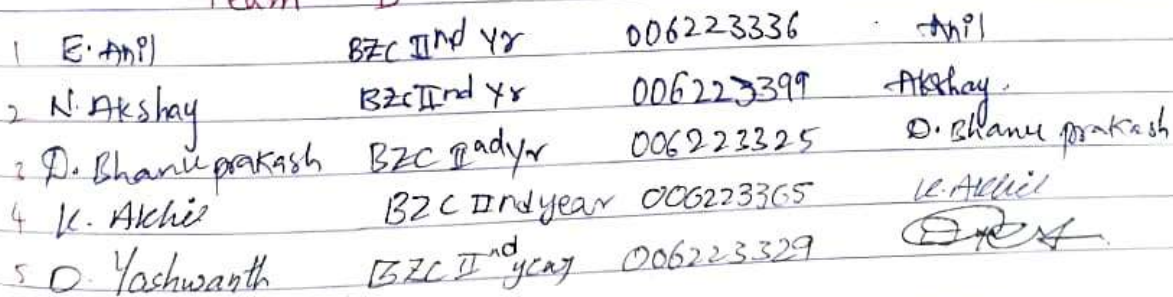 Team
1 E. Anil BZC IInd Yr 006223336 Anil
2 N. Akshay BZC IInd Yr 006223399 Akshay.
3 D. Bhanu prakash BZC IIndyr 006223325 D. Bhanu prakash
4 K. Akhil BZC IInd year 006223365 K. Akhil
5 D. Yashwanth BZC IInd year 006223329